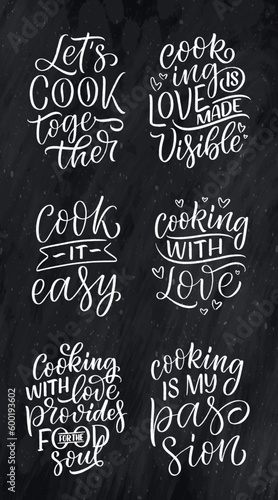 Let's
COOK
toge
ther
cook
ing IS
LOVE
MADE
Visible
Cook
IT
easy
Cooking
WITH
Love
Cooking
WITH love
provides
FOOD
FOR THE
soul
cooking
IS MY
pas
sion
Adobe Stock | #600193602